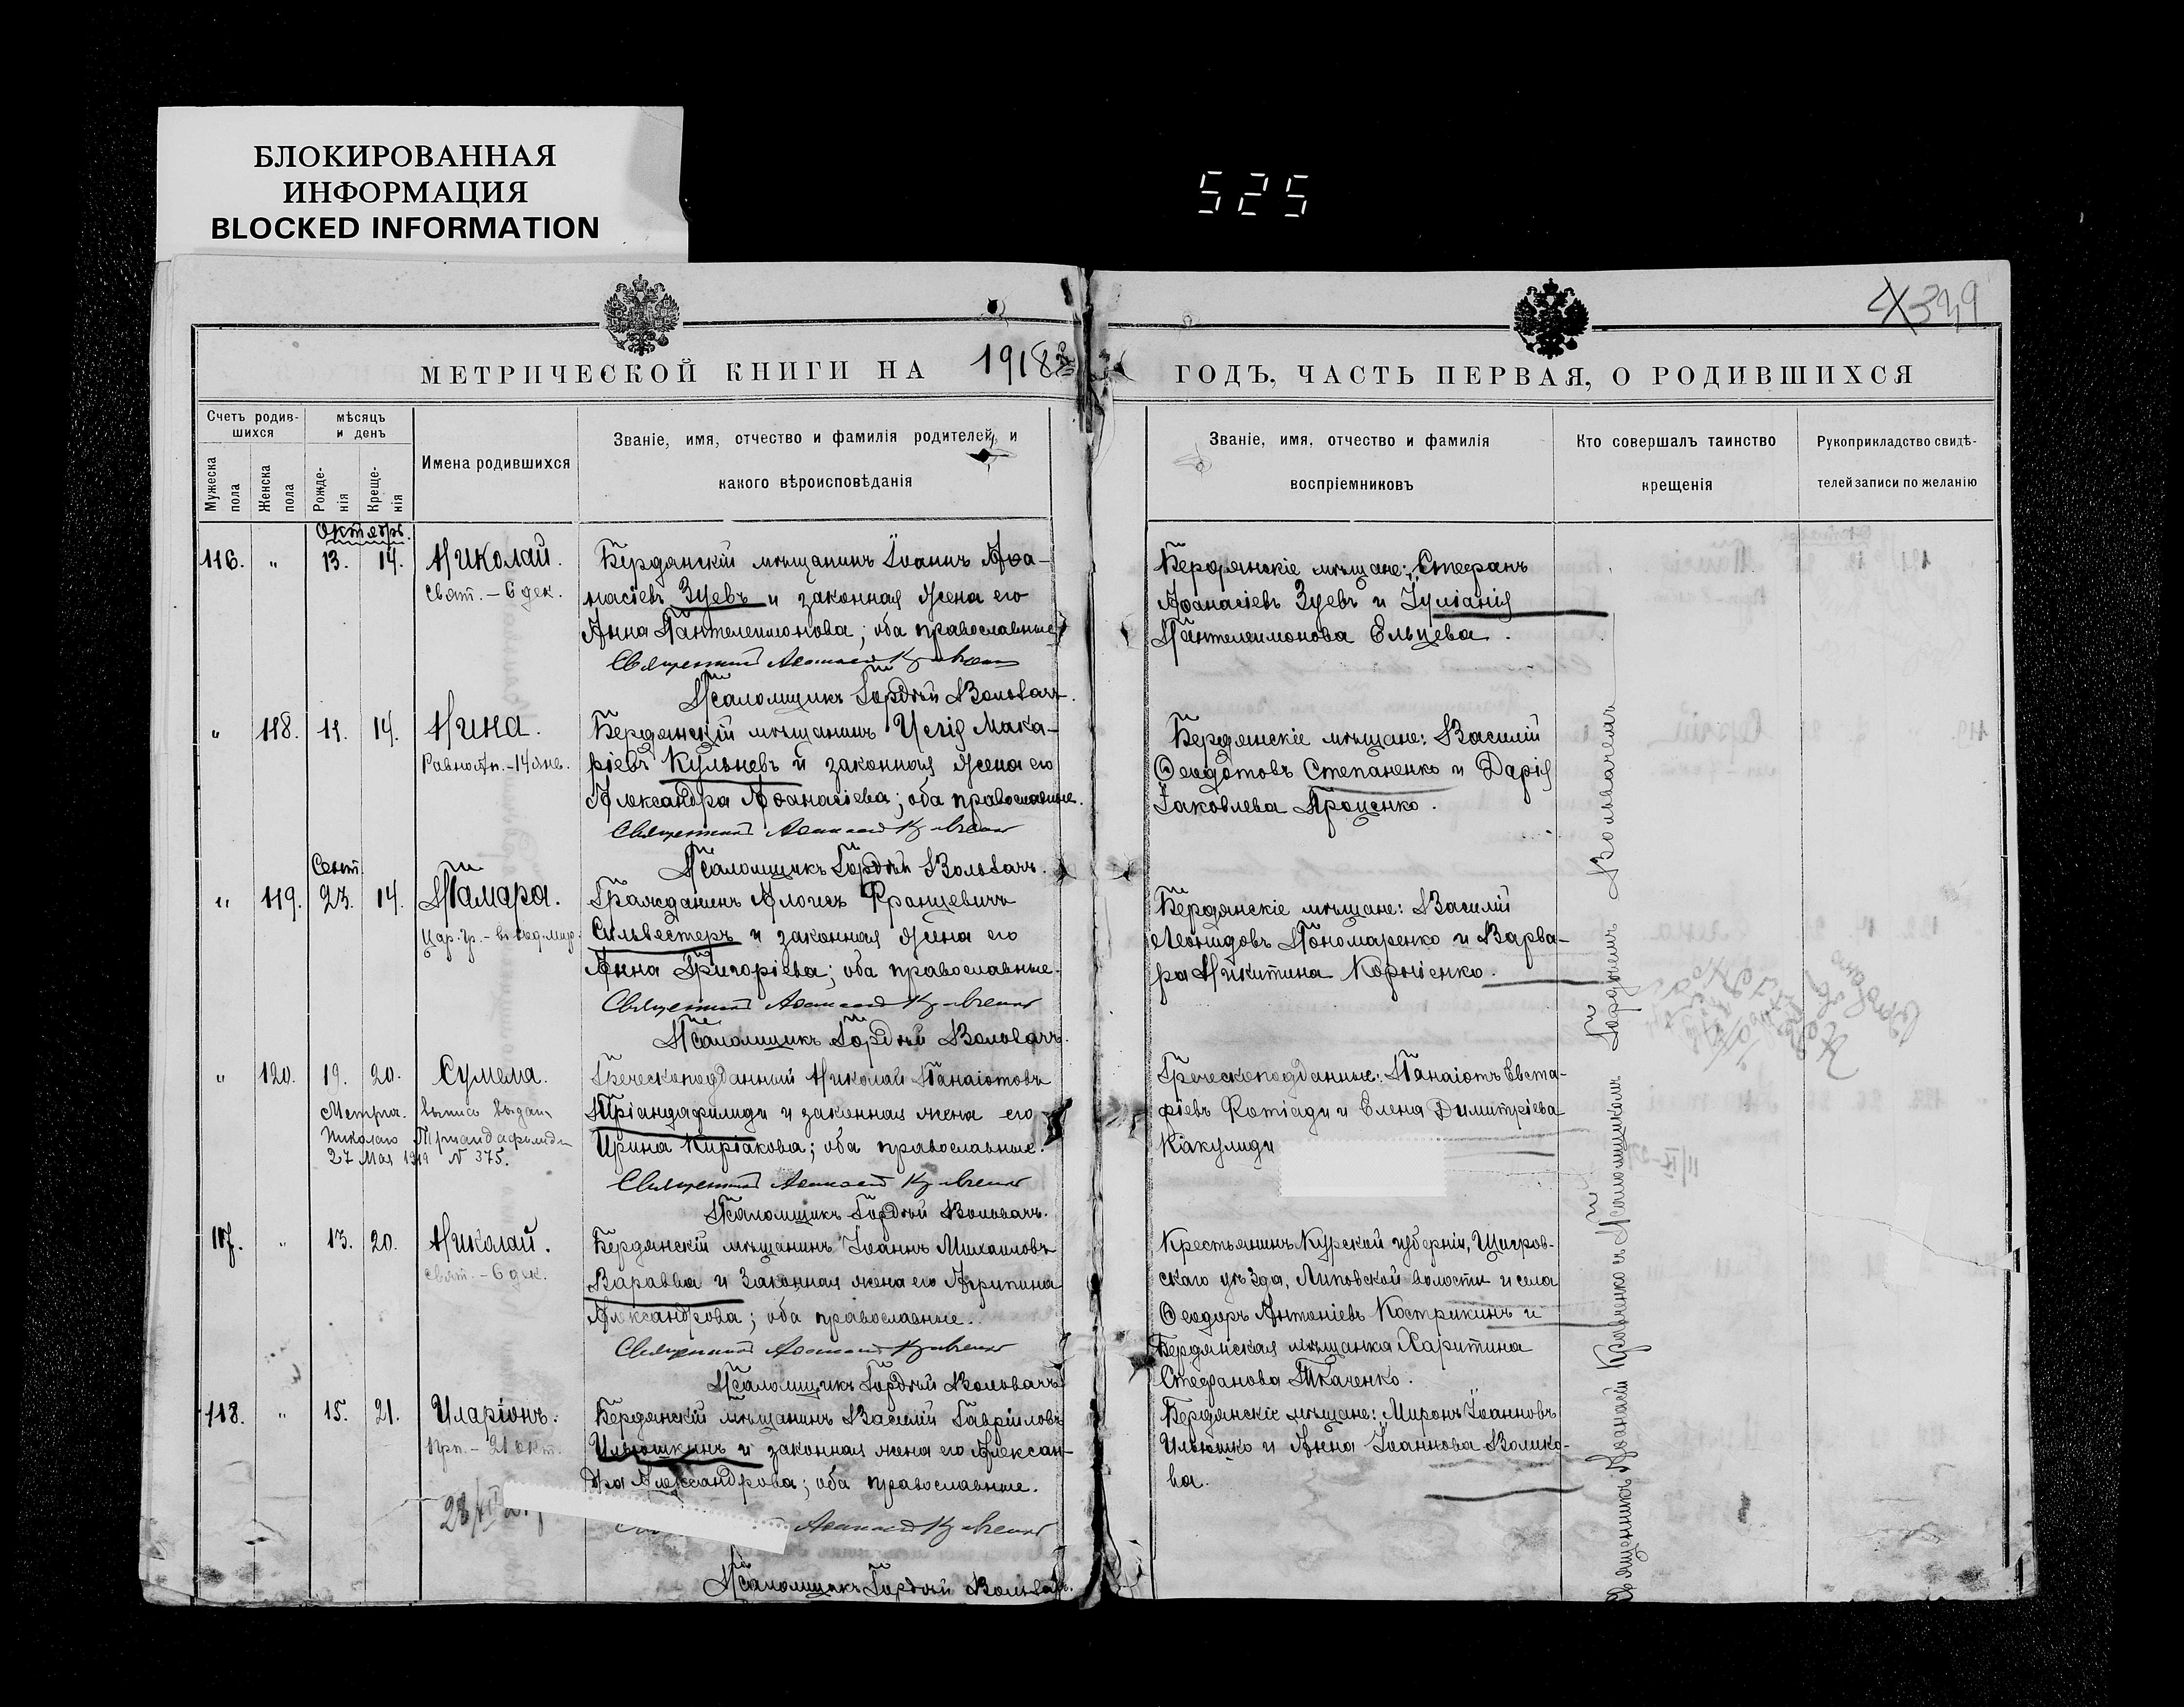 БЛОКИРОВАННАЯ
ИНФОРМАЦИЯ
BLOCKED INFORMATION
525
349
МЕТРИЧЕСКОЙ КНИГИ НА 1918
ГОДЪ, ЧАСТЬ ПЕРВАЯ, О РОДИВШИХСЯ
Счетъ родив-
шихся
Мужеска
пола
Женска
пола
мѣсяцъ
и день
Рожде-
нія
Креще-
нія
Имена родившихся
Званіе, имя, отчество и фамилія родителей, и
какого вѣроисповѣданія
Званіе, имя, отчество и фамилія
воспріемниковъ
Кто совершалъ таинство
крещенія
Рукоприкладство свидѣ-
телей записи по желанію
Октябрь.
116. " 13. 14. Николай.
Свят. - 6 дек.
Бердянскій мѣщанинъ Іоаннъ Аѳа-
насіевъ Зуевъ и законная жена его
Анна Пантелеимонова; оба православные
Священникъ Аѳанасій Кравченко
Псаломщикъ Гордѣй Воловачъ.
Бердянскіе мѣщане: Стефанъ
Аѳанасіевъ Зуевъ и Іуліанія
Пантелеимонова Ельцева.
" 118. 11. 14. Нина.
Равноап. - 14 янв.
Бердянскій мѣщанинъ Исаія Мака-
ріевъ Кульневъ и законная жена его
Александра Аѳанасіева; оба православные.
Священникъ Аѳанасій Кравченко
Псаломщикъ Гордѣй Воловачъ.
Бердянскіе мѣщане: Василій
Ѳеодотовъ Степаненко и Дарія
Іаковлева Проценко.
Сент.
" 119. 23. 14. Тамара.
Гражданинъ Алоисъ Францевичъ
Сильвестеръ и законная жена его
Анна Григоріева; оба православные.
Священникъ Аѳанасій Кравченко
Псаломщикъ Гордѣй Воловачъ.
Бердянскіе мѣщане: Василій
Леонидовъ Пономаренко и Варва-
ра Никитина Корніенко.
" 120. 19. 20. Сумела.
Метрич. выпись выдана
Николаю Тріандафилиди
27 Мая 1919 N 375.
Греческоподданный Николай Панаіотовъ
Тріандафилиди и законная жена его
Ирина Киріакова; оба православные.
Священникъ Аѳанасій Кравченко
Псаломщикъ Гордѣй Воловачъ.
Греческоподданные: Панаіотъ Евста-
фіевъ Фотіади и Елена Димитріева
Кіакулиди
117. " 13. 20. Николай.
Свят. - 6 дек.
Бердянскій мѣщанинъ Іоаннъ Михаиловъ
Варавва и законная жена его Агрипина
Александрова; оба православные.
Священникъ Аѳанасій Кравченко
Псаломщикъ Гордѣй Воловачъ
Крестьянинъ Курской губерніи, Щигров-
скаго уѣзда, Липовской волости и села
Ѳеодоръ Антоніевъ Кострикинъ и
Бердянская мѣщанка Харитина
Стефанова Ткаченко.
118. " 15. 21. Иларіонъ.
Прп. - 21 окт.
Бердянскій мѣщанинъ Василій Гавріиловъ
Ильюшкинъ и законная жена его Алексан-
дра Александрова; оба православные.
Аѳанасій Кравченко
Псаломщикъ Гордѣй Воловачъ.
Бердянскіе мѣщане: Миронъ Іоанновъ
Ильюшко и Анна Іоаннова Волико-
ва.
Священникъ Аѳанасій Кравченко съ Псаломщикомъ Гордѣемъ Воловачемъ